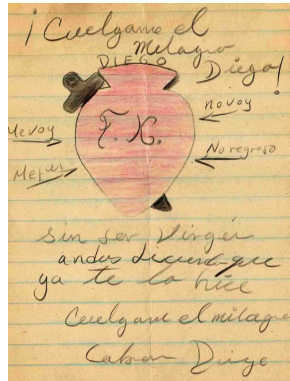 ¡Cuelgame el
Milagro
Diego!
DIEGO
F. K.
no voy
Me voy
No regreso
Me fui
Sin ser Virgen
andas diciendo que
ya te lo hice
Cuelgame el milagro
Cabron Diego